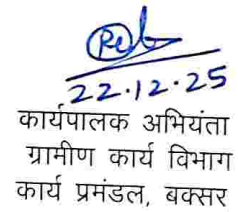 22.12.25
कार्यपालक अभियंता
ग्रामीण कार्य विभाग
कार्य प्रमंडल, बक्सर